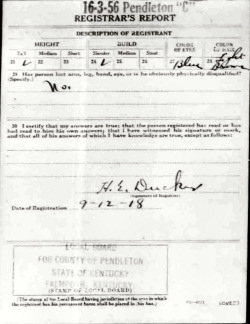 16-3-56 Pendleton "C"
REGISTRAR'S REPORT
DESCRIPTION OF REGISTRANT
HEIGHT BUILD COLOR OF EYES COLOR OF HAIR
Tall Medium Short Slender Medium Stout
21 22 23 24 25 26 27 Blue 28 Light Brown
29 Has person lost arm, leg, hand, eye, or is he obviously physically disqualified?
(Specify.)
No.
30 I certify that my answers are true; that the person registered has read or has
had read to him his own answers; that I have witnessed his signature or mark,
and that all of his answers of which I have knowledge are true, except as follows:
H. E. Ducker
(Signature of Registrar)
Date of Registration 9-12-18
LOCAL BOARD
FOR COUNTY OF PENDLETON
STATE OF KENTUCKY
FALMOUTH, KENTUCKY
(STAMP OF LOCAL BOARD)
(The stamp of the Local Board having jurisdiction of the area in which
the registrant has his permanent home shall be placed in this box.)